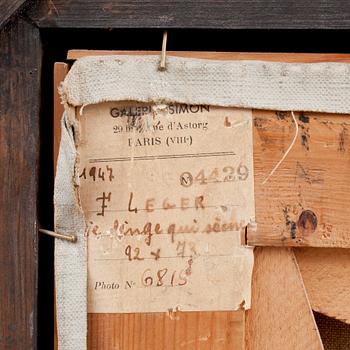 GALERIE SIMON
29 bis, Rue d'Astorg
PARIS (VIIIe)
1947 No 04429
F LEGER
Le linge qui sèche
92 x 73
Photo No 6815